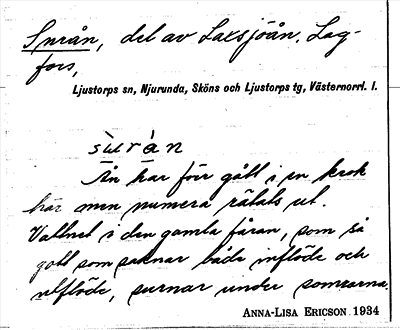 Surån, del av Laxsjöån. Lag-
fors,
Ljustorps sn, Njurunda, Sköns och Ljustorps tg, Västernorrl. l.
sùrȧ̀n
Ån har förr gått i en krok
här men numera rätats ut.
Vattnet i den gamla fåran, som så
gott som saknar både inflöde och
utflöde, surnar under somrarna.
ANNA-LISA ERICSON 1934